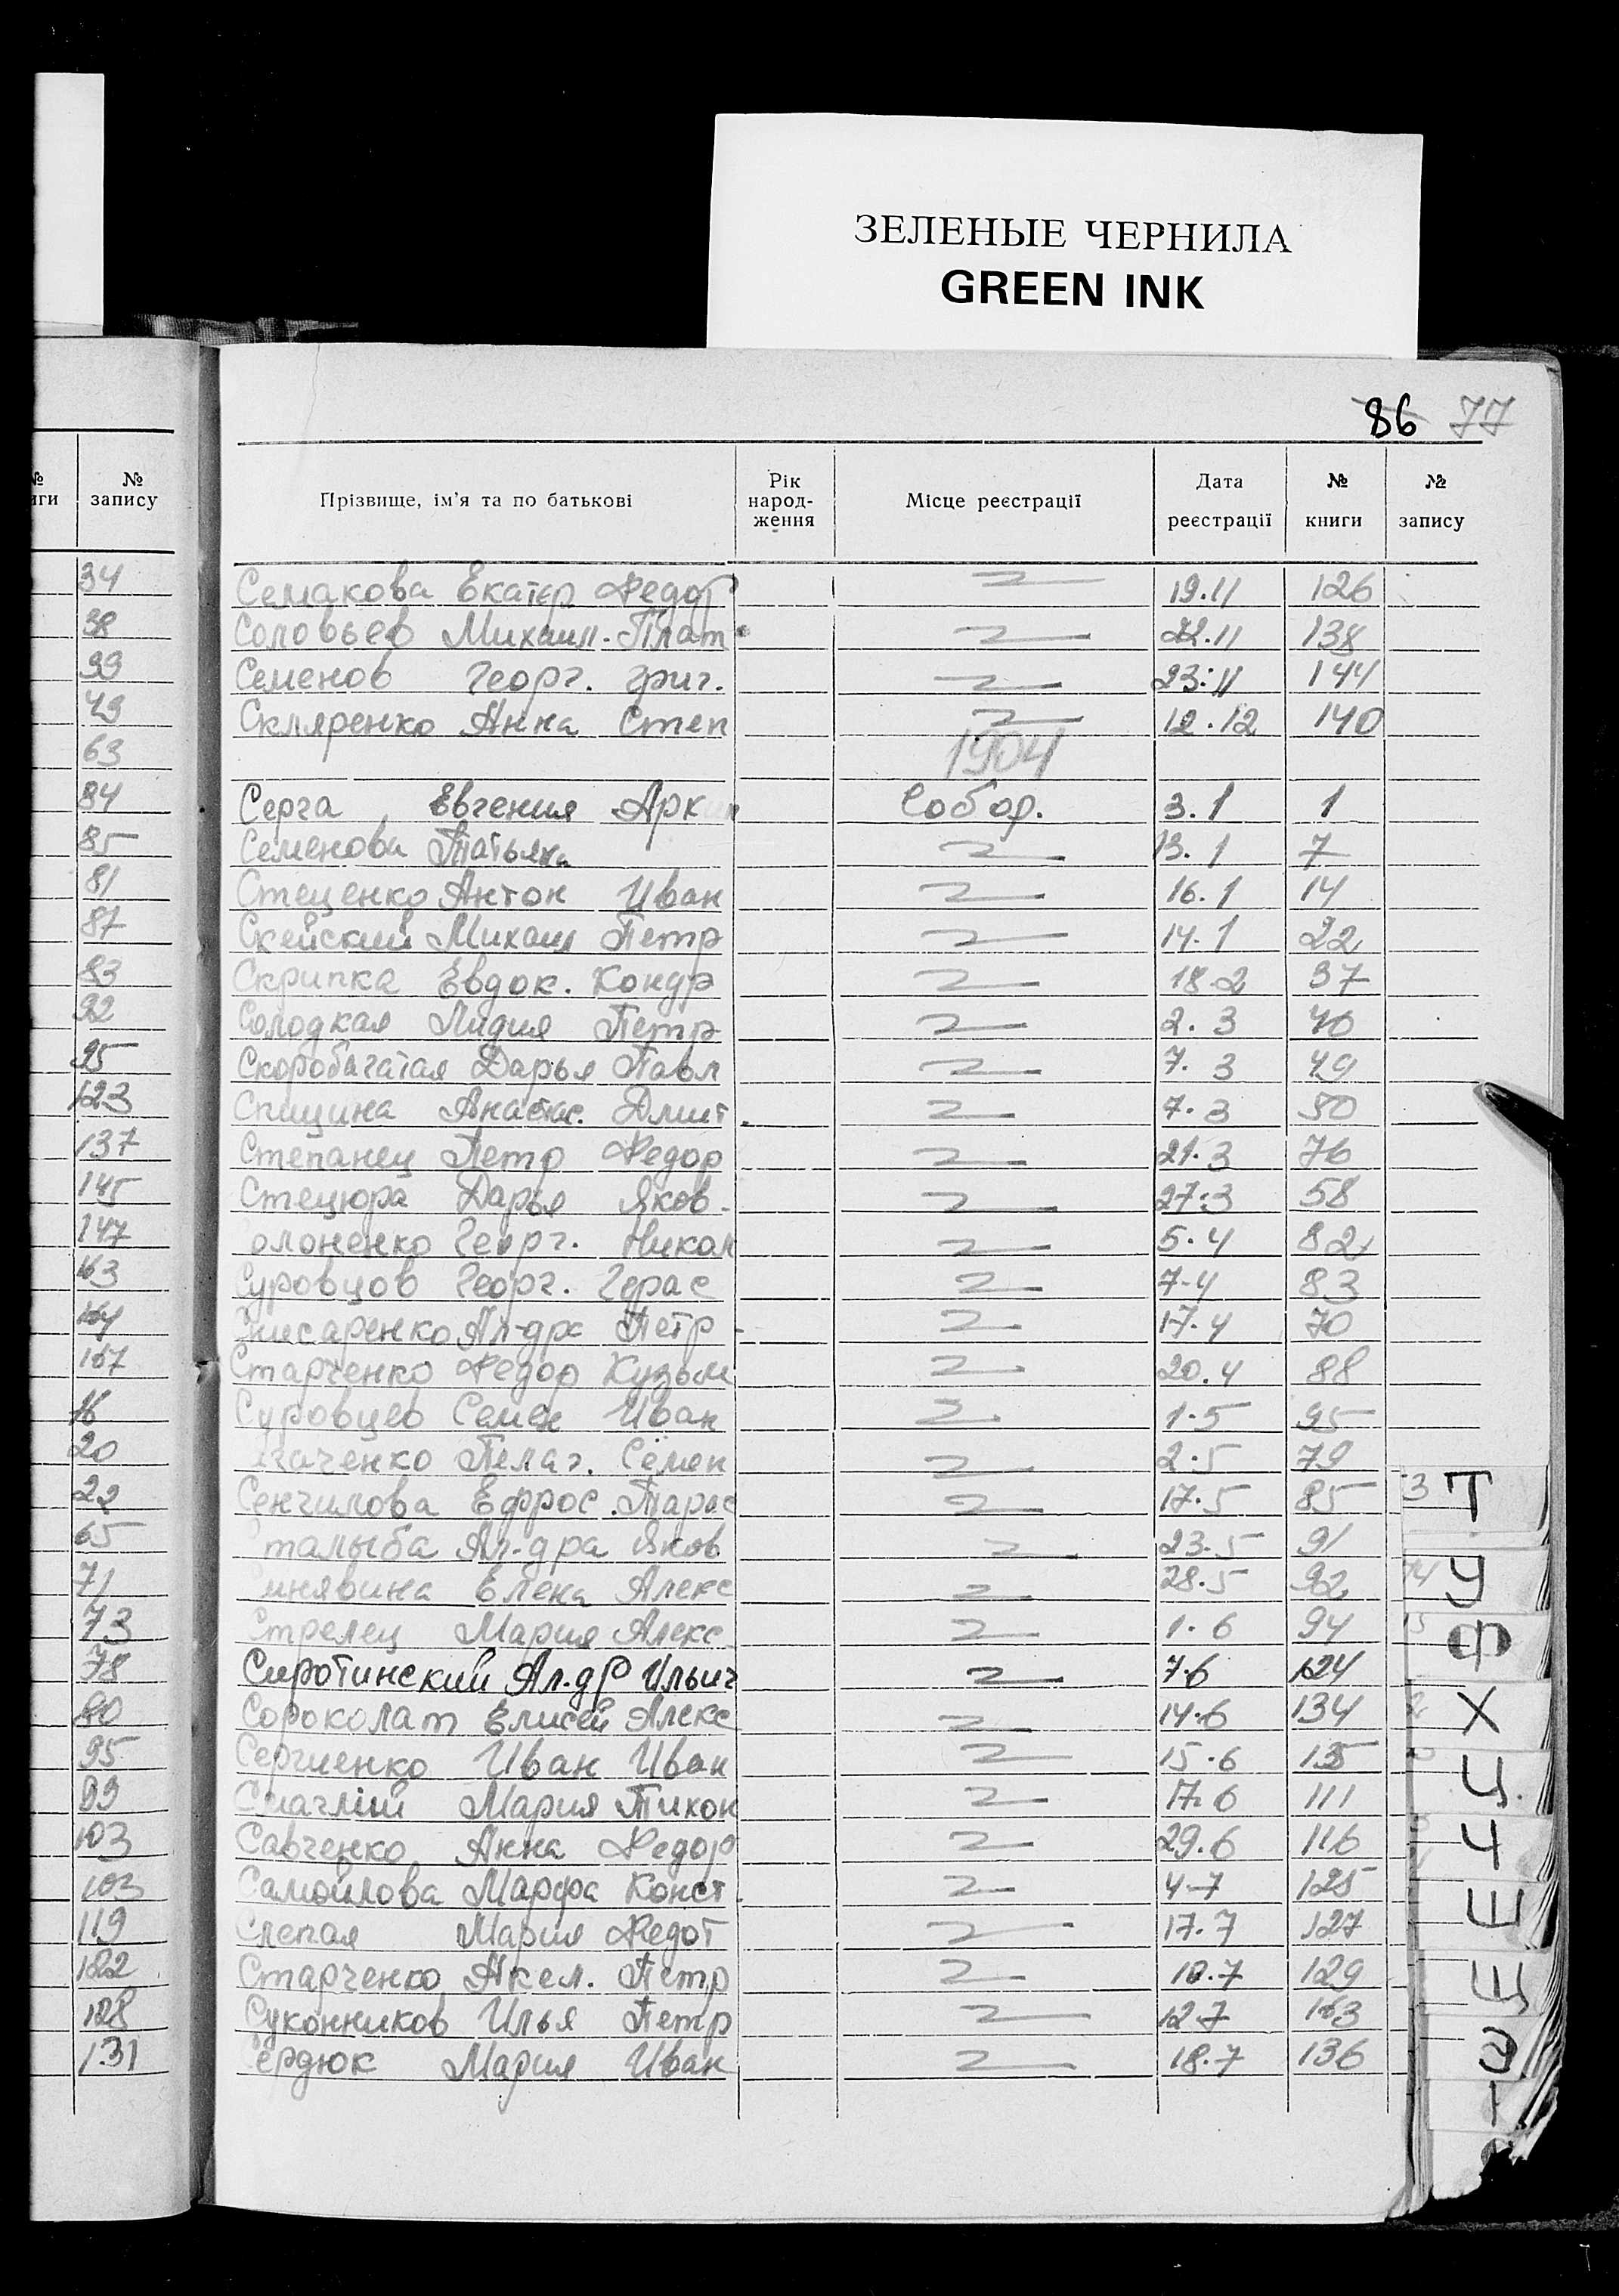 ЗЕЛЕНЫЕ ЧЕРНИЛА
GREEN INK
86 77
№ запису
Прізвище, ім'я та по батькові Рік народження Місце реєстрації Дата реєстрації № книги № запису
34 Семакова Екатер Федор 19.11 126
38 Соловьев Михаил. Плат 22.11 138
39 Семенов Георг. Григ. 23.11 144
49 Скляренко Анна Степ 12.12 140
63 1904
84 Серга Евгения Арк Собор. 3.1 1
85 Семенова Татьяна 13.1 7
81 Стеценко Антон Иван 16.1 14
87 Скейский Михаил Петр 14.1 22
83 Скрипка Евдок. Кондр 18.2 37
92 Солодкая Лидия Петр 2.3 40
95 Скоробагатая Дарья Павл 7.3 49
123 Спицина Анастас. Дмит. 7.3 50
137 Степанец Петр Федор 21.3 76
145 Стецюра Дарья Яков. 27.3 58
147 олоненко Георг. Никол 5.4 82
163 Суровцов Георг. Герас 7.4 83
164 Ал-др Петр 17.4 70
167 Старченко Федор Кузьм 20.4 88
16 Суровцев Семен Иван 1.5 95
20 Пелаг. Семен 2.5 79
22 Сенчилова Ефрос. Тарас 17.5 85
65 Сталыба Ал-дра Яков 23.5 91
71 инявина Елена Алекс 28.5 92
73 Стрелец Мария Алекс 1.6 94
78 Сиротинский Ал.др Ильич 7.6 124
80 Сороколат Елисей Алекс 14.6 134
95 Сергиенко Иван Иван 15.6 135
99 Смаглий Мария Тихон 17.6 111
103 Савченко Анна Федор 29.6 116
103 Самойлова Марфа Конст. 4.7 125
119 Слепая Мария Федот 17.7 127
122 Старченко Акел. Петр 10.7 129
128 Суконников Илья Петр 12.7 163
131 Сердюк Мария Иван 18.7 136
Т
У
Ф
Х
Ц.
Ч
Ш
Щ
Э